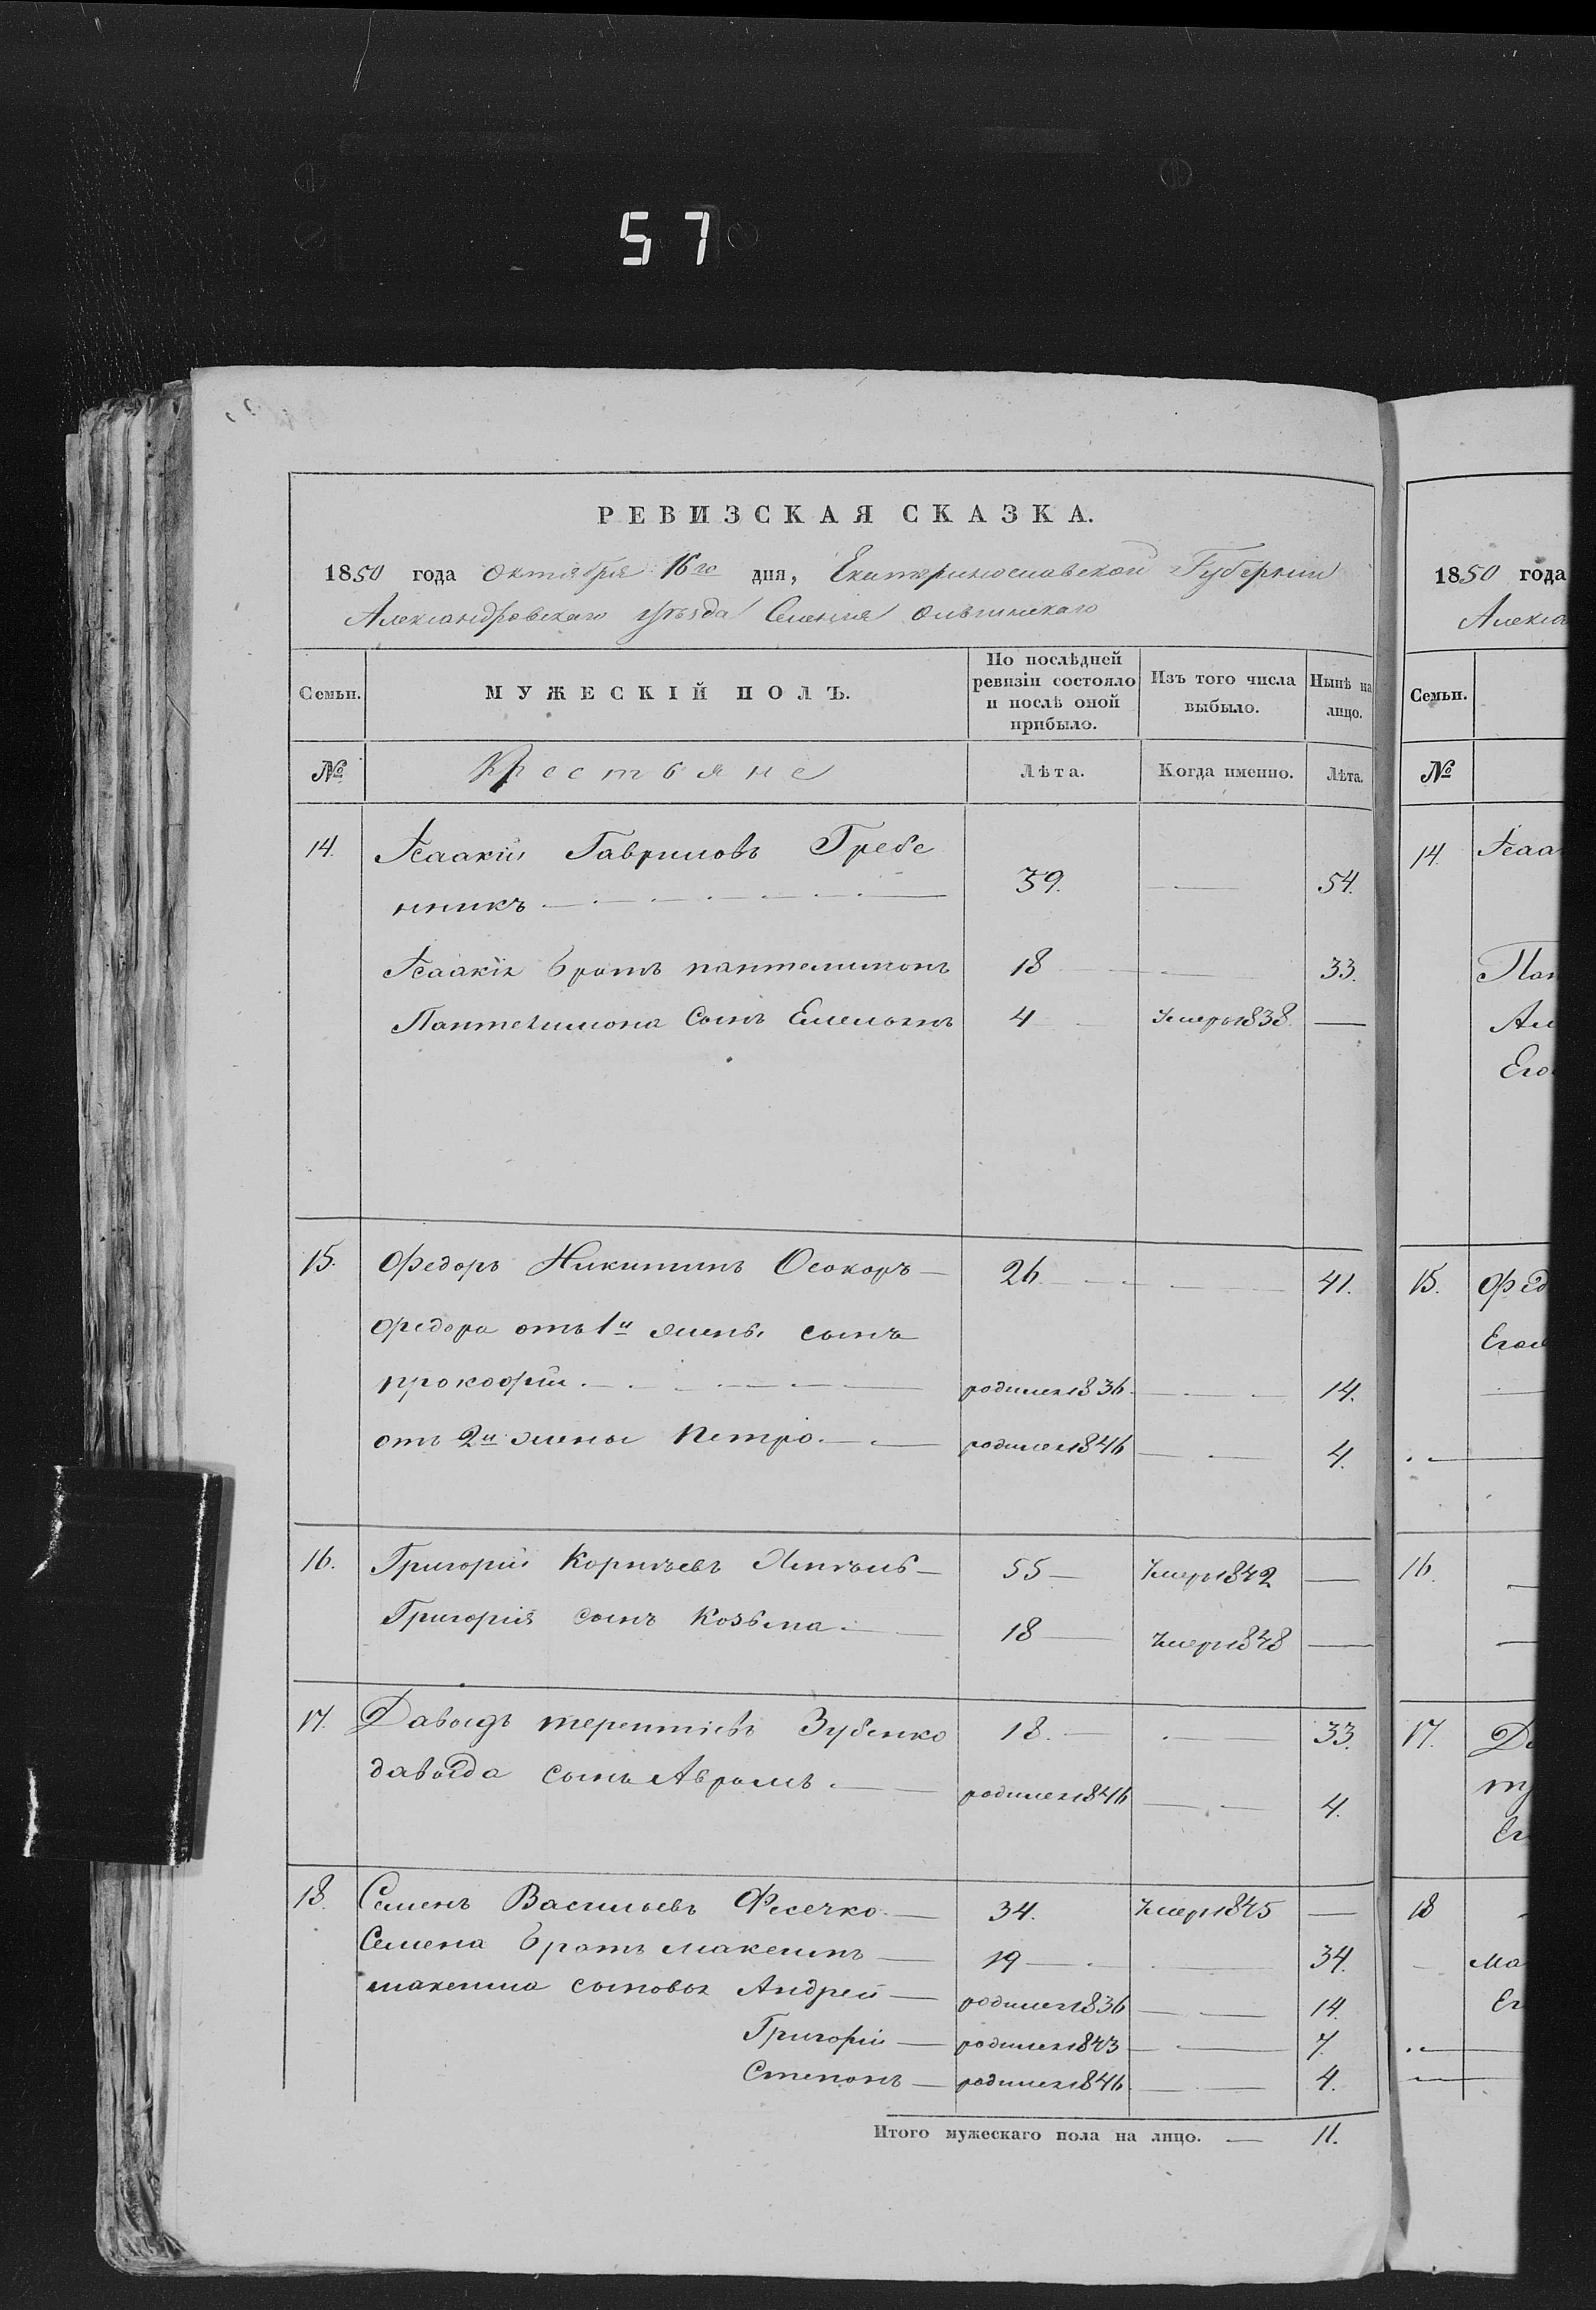 57
РЕВИЗСКАЯ СКАЗКА.
1850 года Октября 16го дня, Екатеринославской Губернии
Александровскаго уѣзда Селения Ольгинскаго
Семьи. МУЖЕСКІЙ ПОЛЪ. По послѣдней ревизіи состояло и послѣ оной прибыло. Изъ того числа выбыло. Нынѣ на лицо.
№ Крестьяне Лѣта. Когда именно. Лѣта.
14. Исаакій Гавриловъ Гребе
нникъ 39. 54.
Исаакія братъ пантелимонъ 18 33.
Пантелимона Сынъ Емельянъ 4 Умеръ 1838. —
15. Федоръ Никитинъ Осокоръ — 26 41.
Федора отъ 1й жены сынъ
прокофій родился 1836 14.
отъ 2й жены Петро родился 1846 4.
16. Григорій Корнѣевъ — 55 — Умеръ 1842 —
Григорія сынъ Козьма 18 — Умеръ 1848 —
17. Давыдъ терентіевъ Зубенко 18. 33.
давыда сынъ Аврамъ родился 1846 4.
18. Семенъ Васильевъ Фесечко — 34. Умеръ 1845 —
Семена братъ максимъ — 19 34.
максима сыновья Андрей — родился 1836 14.
Григорій — родился 1843 7.
Степанъ — родился 1846 4.
Итого мужескаго пола на лицо. — 11.
1850 года
Алекса
Семьи.
№
14. Исаа
Пан
Его
15. Фед
16.
17. Да
18
Ма
Ег